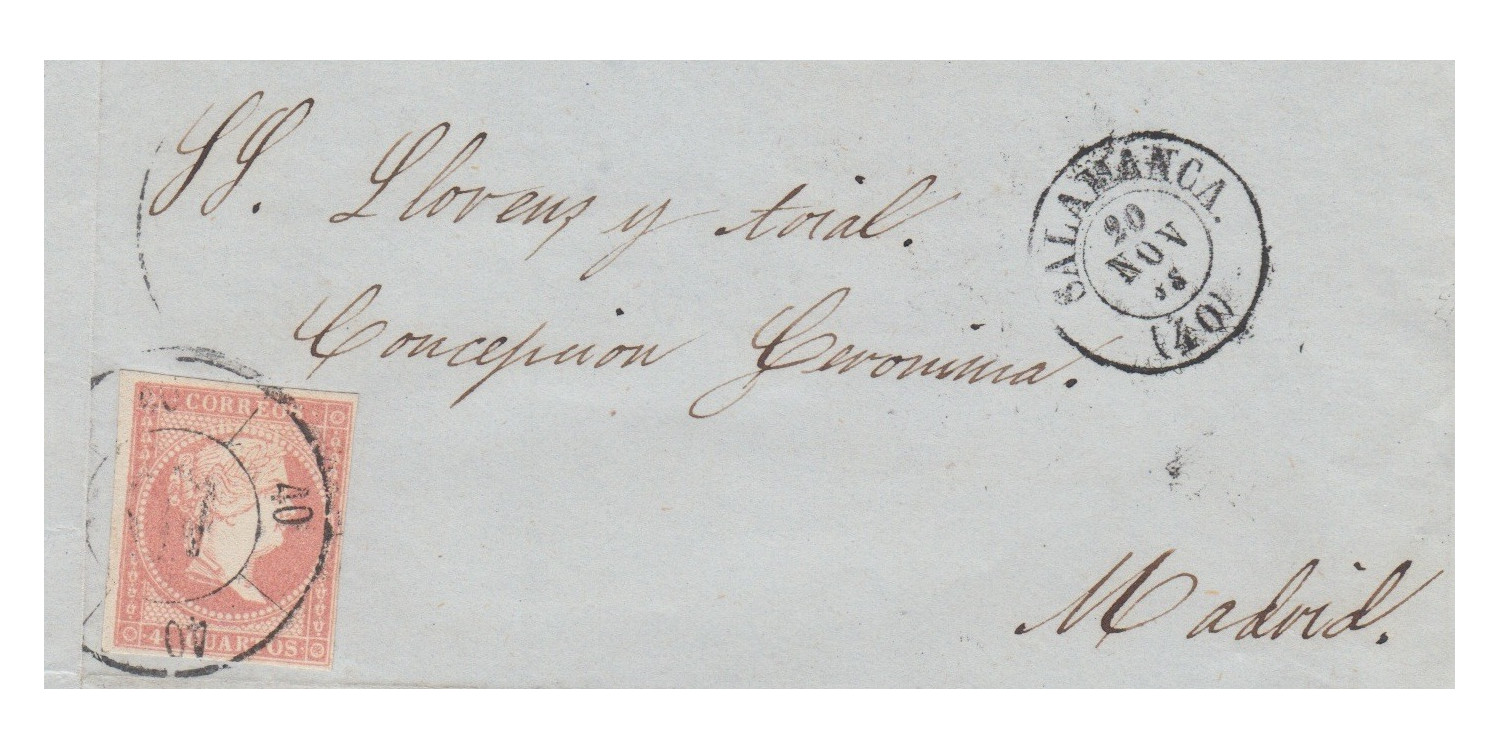 SS. Llorens y toial.
SALAMANCA.
20
NOV
58
(40)
Concepcion Geronima.
CORREOS
40
40
4 CUARTOS
Madrid.